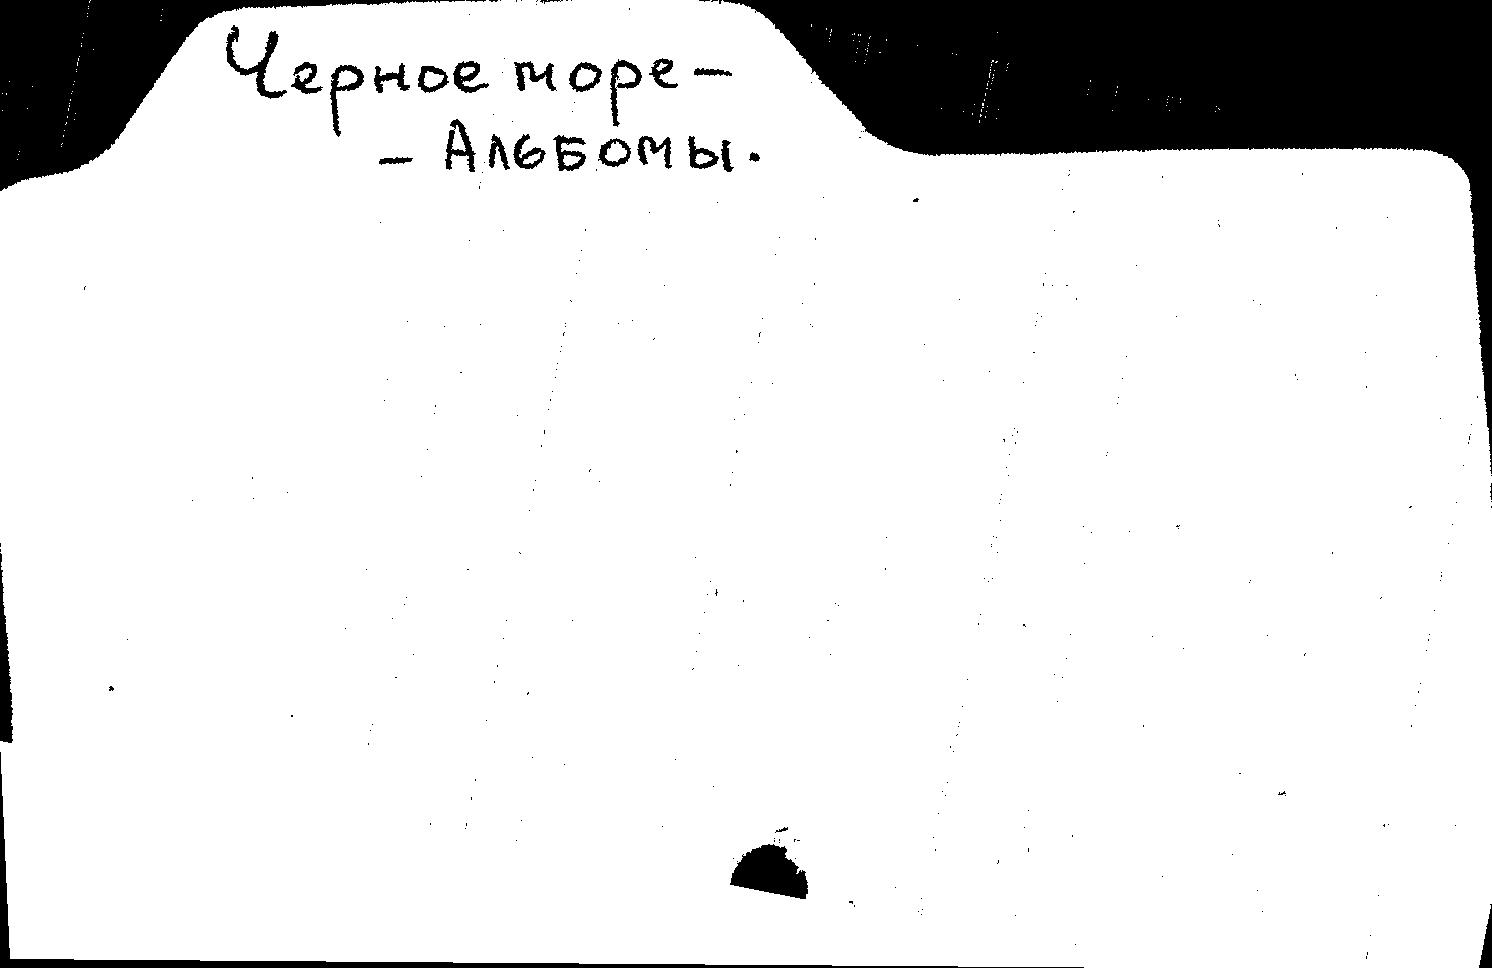 Черное море –
– Альбомы.